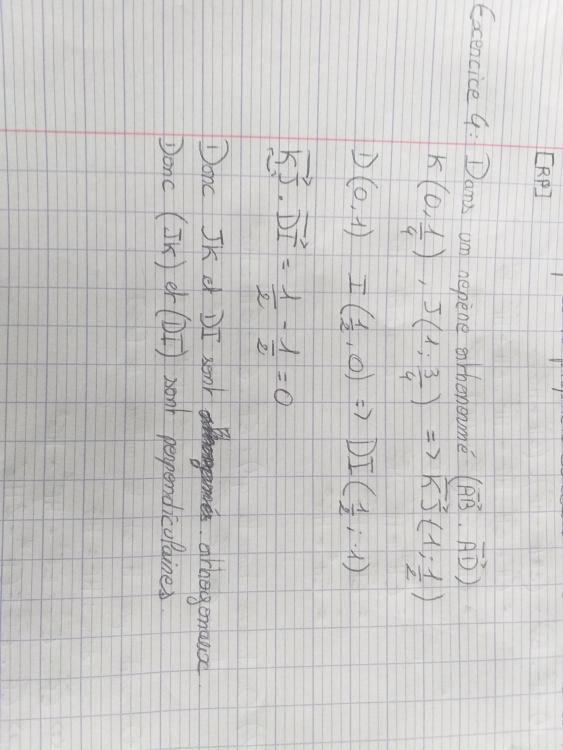 [RP]
Exercice 4: Dans un repère orthonormé (AB⃗ . AD⃗)
K(0,1/4), J(1;3/4) => KJ⃗(1;1/2)
D(0,1) I(1/2,0) => DI(1/2;-1)
KJ⃗ . DI⃗ = 1/2 - 1/2 = 0
Donc JK et DI sont orthogonaux.
Donc (JK) et (DI) sont perpendiculaires.